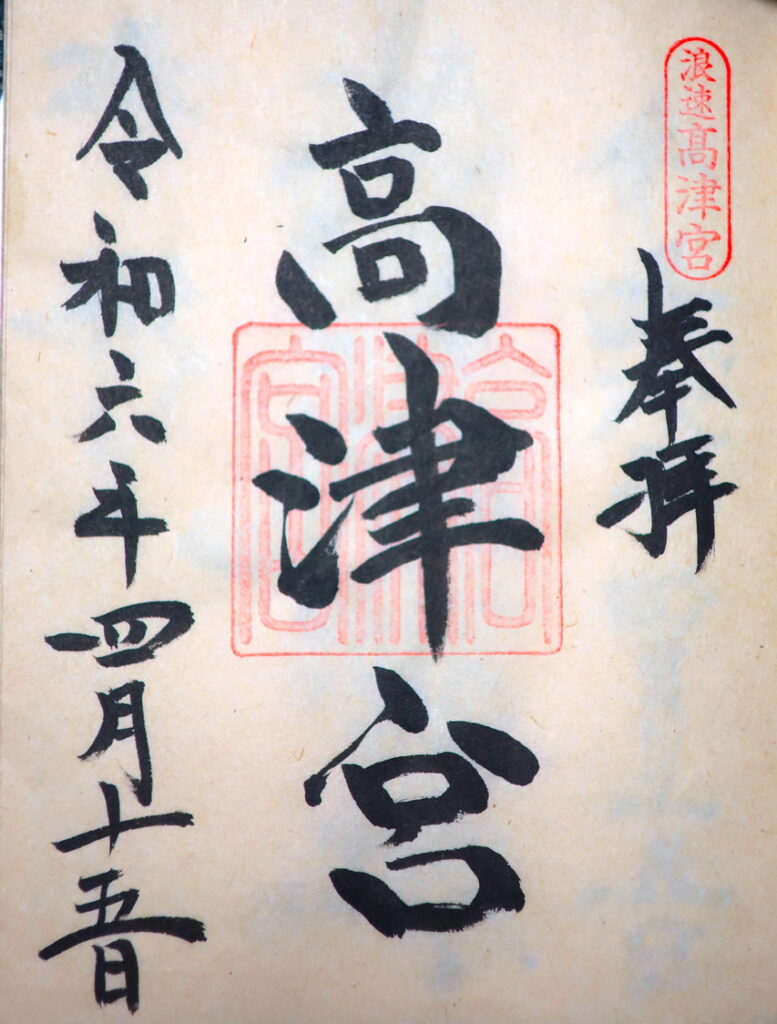 浪速髙津宮
奉拝
高津宮
高津宮
令和六年四月十五日